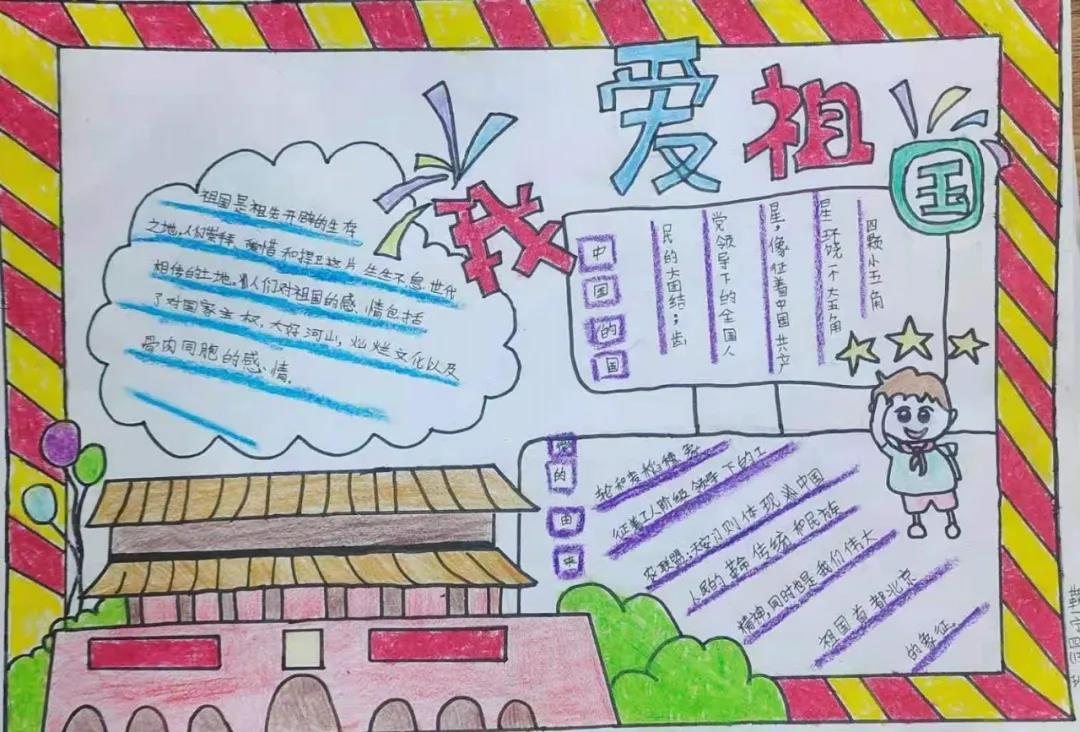 我爱祖国
祖国是祖先开辟的生存
之地,人们崇拜、爱惜和捍卫这片生生不息、世代
相传的土地。人们对祖国的感情包括
了对国家主权,大好河山,灿烂文化以及
骨肉同胞的感情。
中国的国
四颗小五角
星环饶一个大五角
星,像征着中国共产
党领导下的全国人
民的大团结;齿
的由来
轮和麦稻穗象
征着工人阶级领导下的工
农联盟;天安门则体现 中国
人民的革命传统和民族
精神,同时也是我们伟大
祖国首都北京
的象征。